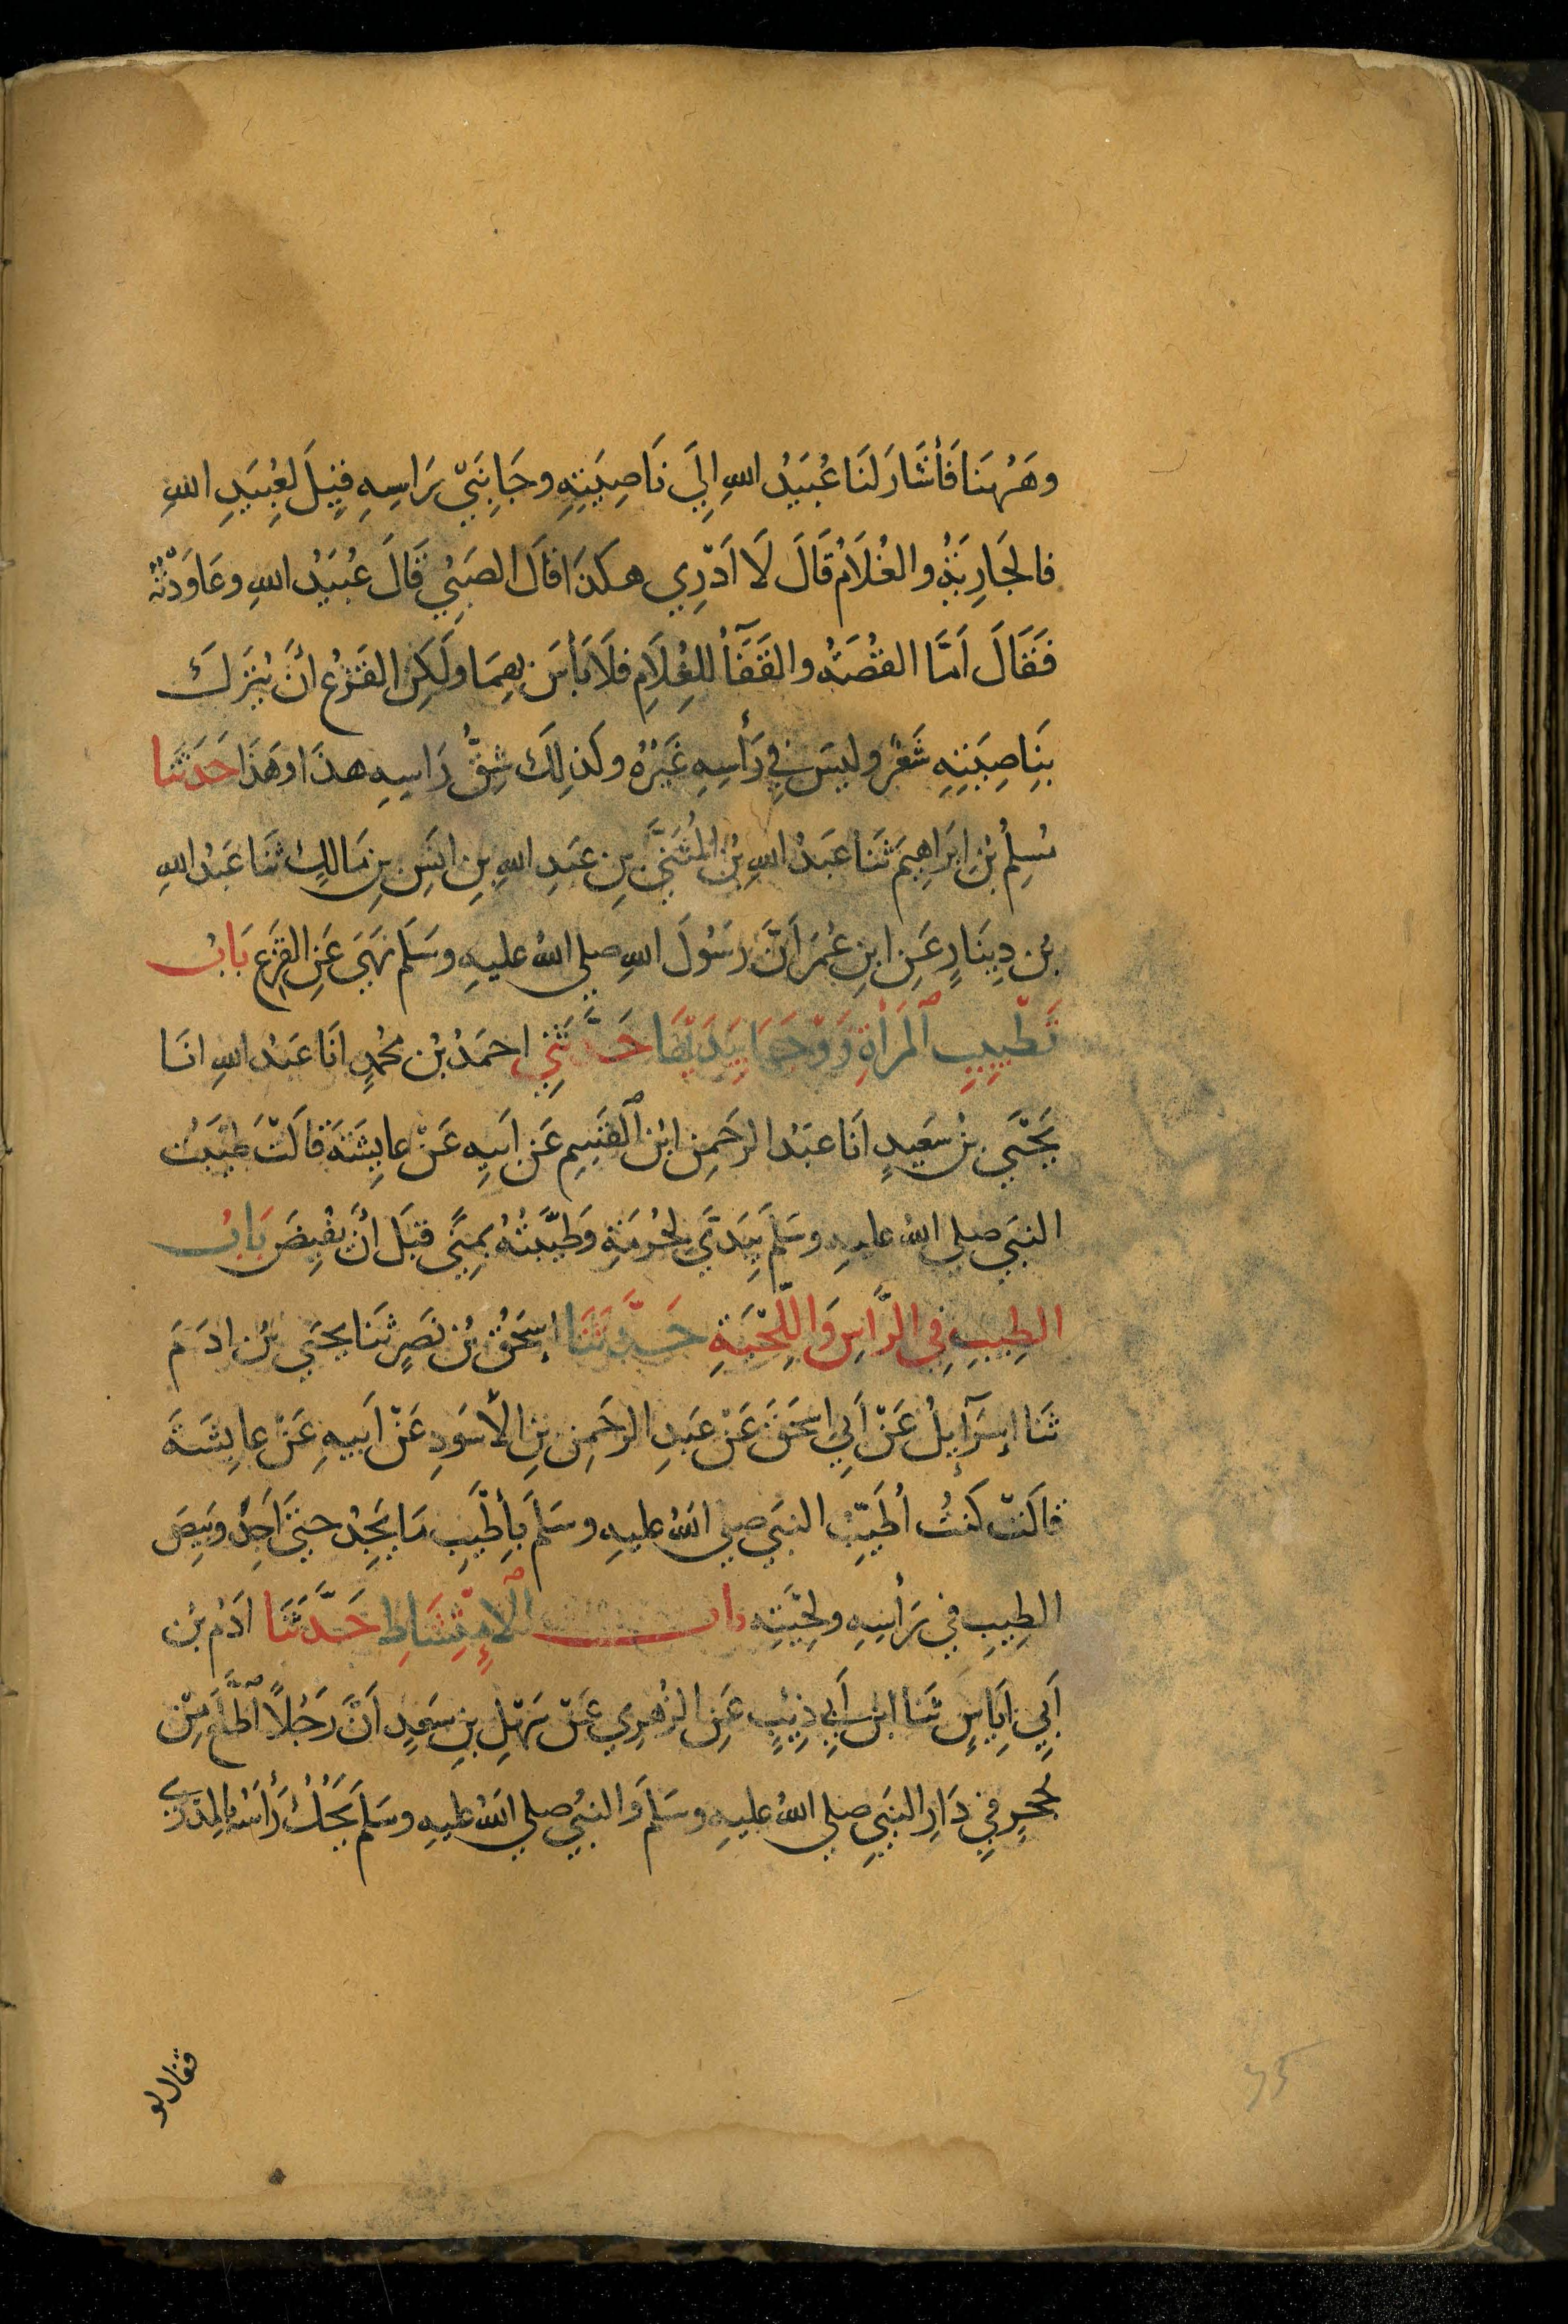 وَهَهُنَا فَأَشَارَ لَنَا عُبَيْدُ اللهِ إِلَي نَاصِيَتِهِ وجَانِبَيْ رَاسِهِ قِيلَ لِعُبَيدِ اللهِ
فالجَارِيَةُ والغُلَامُ قَالَ لَا اَدْرِي هكَذَا قَالَ الصَبِيُ قَالَ عُبَيْدُ اللهِ وعَاوَدْتُهُ
فَقَالَ اَمَّا القُصَّةُ والقَفَأُ لِلغُلَامِ فَلَا بَأسَ بِهِمَا ولَكِن القَزَعُ أَنْ يُتْرَكَ
بِنَاصِيَتِهِ شَعْرٌ وليسَ فِي رَأسِهِ غَيْرُهُ وكَذلِكَ شِقُّ رَاسِهِ هذَا وهَذَا حَدَثَنا
مُسلِمُ بْنُ ابرَاهِيمَ ثَنا عَبدُ اللهِ بْنُ المُثَنَّى بنِ عَبدِ اللهِ بنِ انَسِ بنِ مَالِكٍ ثَنا عَبْدُ اللهِ
بْنُ دِينَارٍ عَنِ ابنِ عُمَرَ اَنَّ رَسُولَ اللهِ صلي اللهُ عليهِ وسَلَم نَهَى عَنِ القَزَعِ بَابُ
تَطْيِيبِ المَرْأَةِ زَوْجَهَا بِيَدَيْهَا حَدَّثَنِي احمَدُ بْنُ مُحَمَدٍ انَا عَبدُ اللهِ انَا
يَحْيَي بْنُ سَعِيدٍ انَا عَبدُ الرحَمنِ ابْنُ القسِمِ عَن اَبِيهِ عَنْ عايِشَةَ قالَتْ طَيَّبْتُ
النبَي صلي اللهُ عليهِ وسَلَمَ بِيَدَيَّ لِحُرْمِهِ وطَيَّبْتُهُ بِمِنًى قَبلَ أَنْ يُفِيضَ بَابُ
الطِيبِ فِي الرَّاسِ وَاللِّحْيَةِ حَدَّثَنَا إِسحَقُ بْنُ نَصرٍ ثَنا يَحيَي بْنُ ادَمَ
ثَنا إسرَآئِيلُ عَنْ اَبِي اسحَقَ عَنْ عَبدِ الرحَمنِ بْنِ الأَسوَدِ عَنْ اَبيهِ عَنْ عايِشَةَ
قالَتْ كُنْتُ أُطَيِّبُ النبَي صلي اللهُ عليهِ وسَلَمَ بِأَطْيَبِ مَا يَجِدُ حتَيَ اَجِدَ وَبِيصَ
الطِيبِ فِي رَأسِهِ ولِحْيَتِهِ باب الاِمْتِشَاطِ حَدَّثَنَا ادَمُ بْنُ
اَبِي اِيَاسٍ ثَنا ابْنُ اَبِي ذِيبٍ عَنِ الزُهرِي عَنْ سَهْلِ بنِ سَعدٍ اَنَّ رَجُلًا اطَّلَعَ مِنْ
جُحرٍ فِي دَارِ النبَيِ صلي اللهُ عليهِ وسَلَمَ والنبَي صلي اللهُ عليهِ وسَلَم يَحُكُ رَأسَهُ بالمِدْرَي
فقال لو